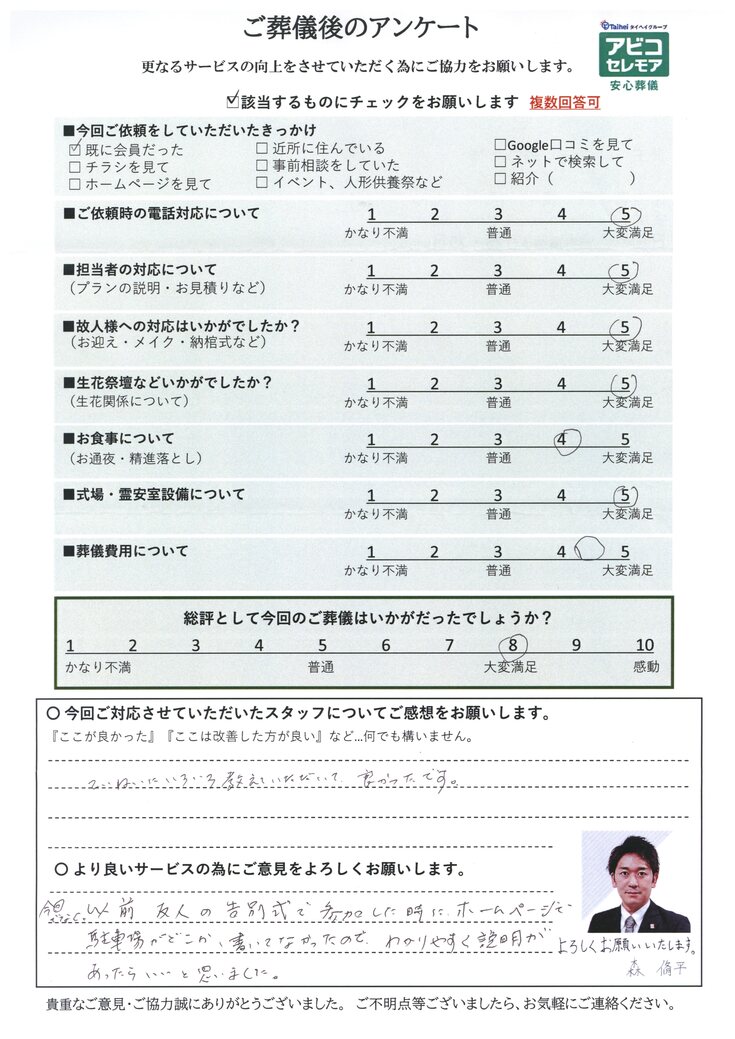 ご葬儀後のアンケート
Taihei タイヘイグループ
アビコ
セレモア
安心葬儀
更なるサービスの向上をさせていただく為にご協力をお願いします。
☑該当するものにチェックをお願いします 複数回答可
■今回ご依頼をしていただいたきっかけ
☑ 既に会員だった □ 近所に住んでいる □Google口コミを見て
□ チラシを見て □ 事前相談をしていた □ ネットで検索して
□ ホームページを見て □ イベント、人形供養祭など □ 紹介（ ）
■ご依頼時の電話対応について 1 2 3 4 5
かなり不満 普通 大変満足
■担当者の対応について 1 2 3 4 5
（プランの説明・お見積りなど） かなり不満 普通 大変満足
■故人様への対応はいかがでしたか？ 1 2 3 4 5
（お迎え・メイク・納棺式など） かなり不満 普通 大変満足
■生花祭壇などいかがでしたか？ 1 2 3 4 5
（生花関係について） かなり不満 普通 大変満足
■お食事について 1 2 3 4 5
（お通夜・精進落とし） かなり不満 普通 大変満足
■式場・霊安室設備について 1 2 3 4 5
かなり不満 普通 大変満足
■葬儀費用について 1 2 3 4 5
かなり不満 普通 大変満足
総評として今回のご葬儀はいかがだったでしょうか？
1 2 3 4 5 6 7 8 9 10
かなり不満 普通 大変満足 感動
〇 今回ご対応させていただいたスタッフについてご感想をお願いします。
『ここが良かった』『ここは改善した方が良い』など…何でも構いません。
ていねいにいろいろ教えていただいて、良かったです。
〇 より良いサービスの為にご意見をよろしくお願いします。
以前 友人の告別式で参加した時に、ホームページで
駐車場がどこか、書いてなかったので、わかりやすく説明が
あったらいいと思いました。
よろしくお願いいたします。
森 脩平
貴重なご意見・ご協力誠にありがとうございました。 ご不明点等ございましたら、お気軽にご連絡ください。